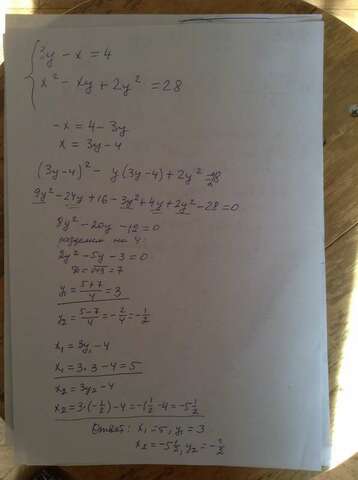 3y - x = 4
x² - xy + 2y² = 28
-x = 4 - 3y
x = 3y - 4
(3y-4)² - y(3y-4) + 2y² = 28
9y² - 24y + 16 - 3y² + 4y + 2y² - 28 = 0
8y² - 20y - 12 = 0
разделим на 4:
2y² - 5y - 3 = 0
= 7
y₁ = (5+7)/4 = 3
y₂ = (5-7)/4 = -2/4 = -1/2
x₁ = 3y₁ - 4
x₁ = 3 · 3 - 4 = 5
x₂ = 3y₂ - 4
x₂ = 3·(-1/2) - 4 = -1 1/2 - 4 = -5 1/2
Ответ: x₁ = 5, y₁ = 3
x₂ = -5 1/2, y₂ = -1/2